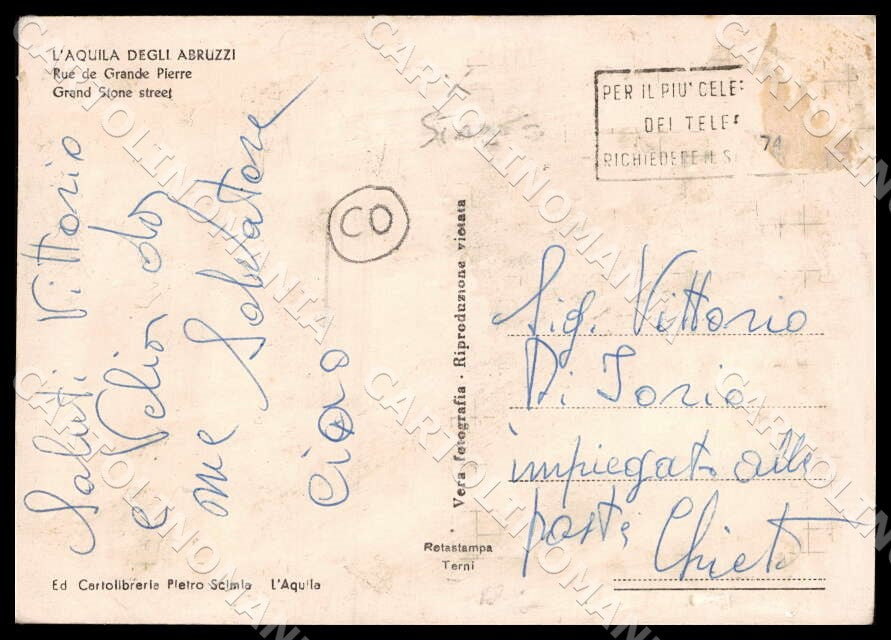 L'AQUILA DEGLI ABRUZZI
Rue de Grande Pierre
Grand Stone street
Saluti Vittorio
e Velia da
me Salvatore
Ciao
CO
PER IL PIU' CELE
DEI TELE
RICHIEDERE IL S
74
Vera fotografia - Riproduzione vietata
Sig. Vittorio
Di Iorio
impiegato alle
poste Chieti
Rotastampa
Terni
Ed Cartolibreria Pietro Scimia L'Aquila
CARTOLINOMANIA